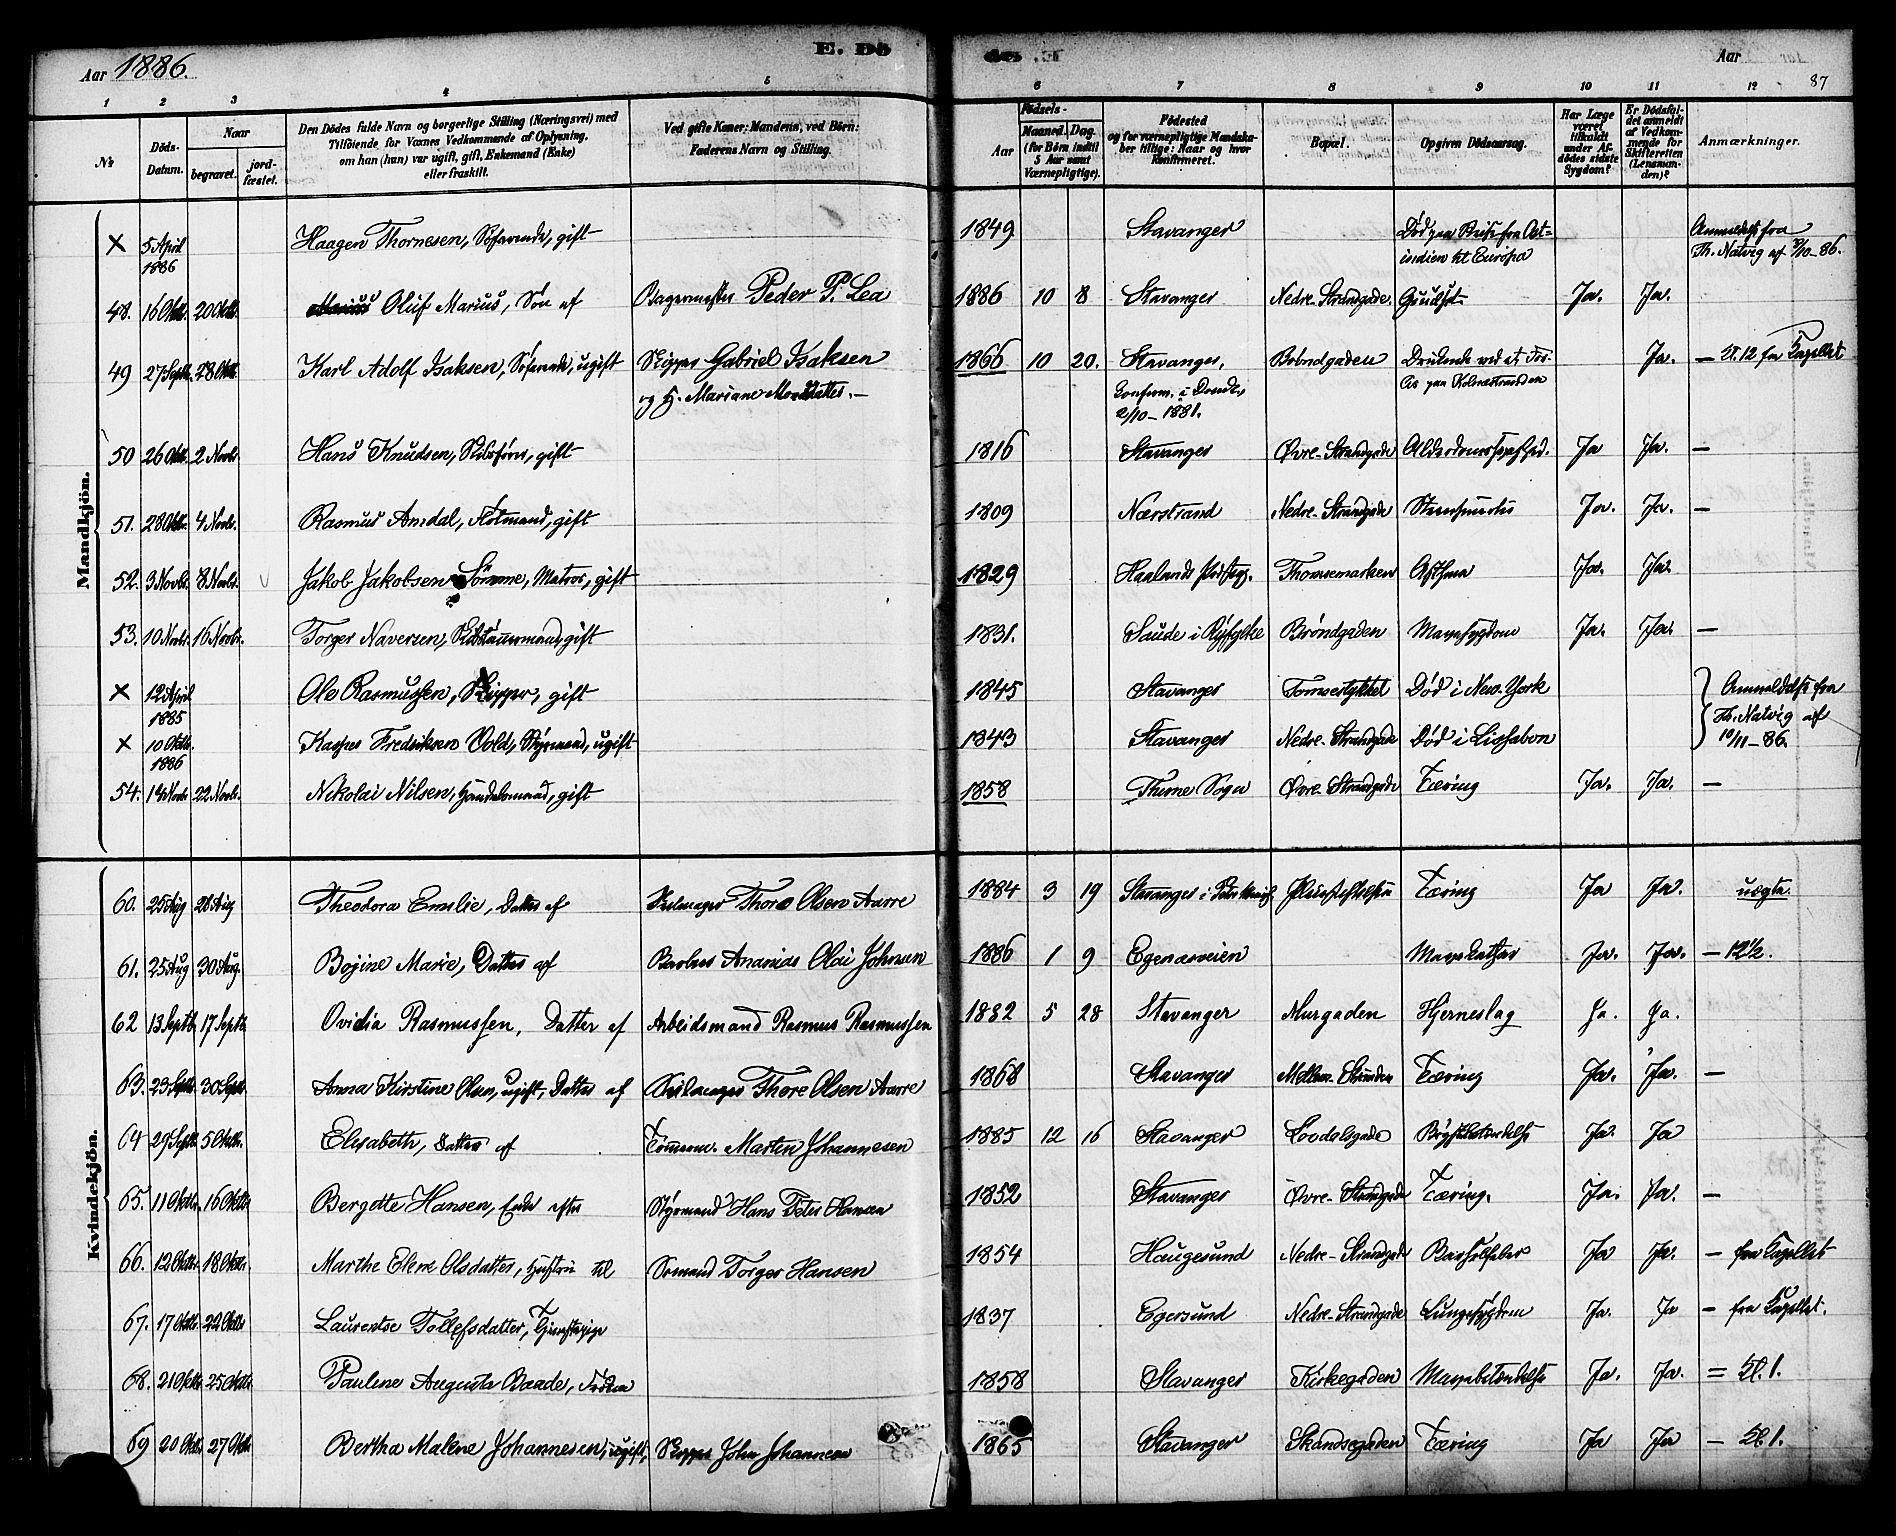 Aar 1886. E. Dö
de. E. Aar 87
1 2 3 4 5 6 7 8 9 10 11 12
№ Döds-Datum. Naar begravet. jordfæstet. Den Dödes fulde Navn og borgerlige Stilling (Næringsvei) med Tilföiende for Voxnes Vedkommende af Oplysning, om han (hun) var ugift, gift, Enkemand (Enke) eller fraskilt. Ved gifte Koner: Mandens, ved Börn: Faderens Navn og Stilling. Aar Födsels- Maaned. Dag. (for Börn indtil 5 Aar samt Værnepligtige). Födested og for værnepligtige Mandskaber tillige: Naar og hvor Konfirmeret. Bopæl. Opgiven Dödsaarsag. Har Læge været tilkaldt under Afdödes sidste Sygdom? Er Dödsfaldet anmeldt af Vedkommende for Skifteretten (Lensmanden)? Anmærkninger.
Mandkjön.
× 5 April 1886 Haagen Thornesen, Söfarende, gift 1849 Stavanger Död paa Reise fra Ostindien til Europa Anmeldt fra Th. Natvig af /10-86.
48. 16 Oktb. 20 Oktb. Oluf Marius, Sön af Bagermester Peder P. Lea 1886 10 8 Stavanger Nedre-Strandgade. Ja. Ja.
49 27 Septb. 28 Oktb. Karl Adolf Isaksen, Söfarende, ugift Skipper Gabriel Isaksen og H. Mariane 1866 10 20. Stavanger, Confirm. i Domk. 2/10-1881. Bröndgaden Druknede ved et Forlis paa Ja. - Kl. 12 fra Kapellet
50 26 Oktb. 2 Novb. Hans Knudsen, gift 1816 Stavanger Övre-Strandgade Alderdomssvaghed. Ja Ja. -
51. 28 Oktb. 4 Novb. Rasmus Amdal, gift 1809 Nærstrand Nedre-Strandgade Ja. Ja. -
52. 3 Novbr. 8 Novb. Jakob Jakobsen Sömme, Matros, gift 1829 Haalands Præstegj. Thomsemarken Asthma Ja. Ja.
53. 10 Novbr. 16 Novbr. Torger Naversen, Skibstömmermand, gift 1831. Saude i Ryfylke Bröndgaden Mavesygdom Ja. Ja. -
× 12 April 1885 Ole Rasmussen, Skipper, gift 1845 Stavanger Död i New-York Anmeldelse fra Th. Natvig af 10/11-86.
× 10 Oktb. 1886 Kasper Fredriksen Vold, Styrmand, ugift 1843 Stavanger Nedre-Strandgade Död i Lissabon
54. 18 Novb. 22 Novb. Nikolai Nilsen, Handelsmand, gift 1858 Thime Sogn Övre-Strandgade Tæring Ja. Ja. -
Kvindekjön.
60. 25 Aug 28 Aug Theodora Emilie, Datter af Seilmager Thore Olsen Aarre 1884 3 19 Stavanger Tæring Ja Ja. uægte.
61. 25 Aug 30 Aug. Bojine Marie, Datter af Ananias Olai Johnsen 1886 1 9 Egenæsveien Mavekathar Ja. Ja. - 12½.
62 13 Septb. 17 Septb. Ovidia Rasmussen, Datter af Arbeidsmand Rasmus Rasmussen 1882 5 28 Stavanger Murgaden Hjerneslag Ja. Ja.
63. 23 Septb. 30 Septb. Anna Kirstine Olsen, ugift, Datter af Seilmager Thore Olsen Aarre 1868 Stavanger Mellem-Stranden Tæring Ja. Ja. -
64 29 Septb. 5 Oktb. Elisabeth, Datter af Tömmerm. Martin Johannesen 1885 12 16 Stavanger Lovdalsgade Brystbetændelse Ja. Ja
65. 11 Oktb. 16 Oktb. Bergitte Hansen, Enke efter Styrmand Hans Peter Hansen 1852 Stavanger Övre-Strandgade Tæring. Ja. Ja. -
66. 12 Oktb. 18 Oktb. Marthe Elene Olsdatter, Hustru til Sömand Torger Hansen 1854 Haugesund Nedre-Strandgade Barselfeber Ja Ja. - fra Kapellet
67. 17 Oktb. 22 Oktb Laurentse Tollefsdatter, Tjenestepige 1837 Egersund Nedre-Strandgade Lungesygdom Ja. Ja - fra Kapellet.
68. 21 Oktb. 25 Oktb. Paulene Augusta Baade, Fröken 1858 Stavanger Kirkegaden Mavebetændelse Ja Ja. = Kl. 1.
69 20 Oktb. 27 Oktb. Bertha Malene Johannesen, ugift, Skipper John Johannesen 1865 Stavanger Skandsegaden Tæring Ja Ja - Kl. 1.